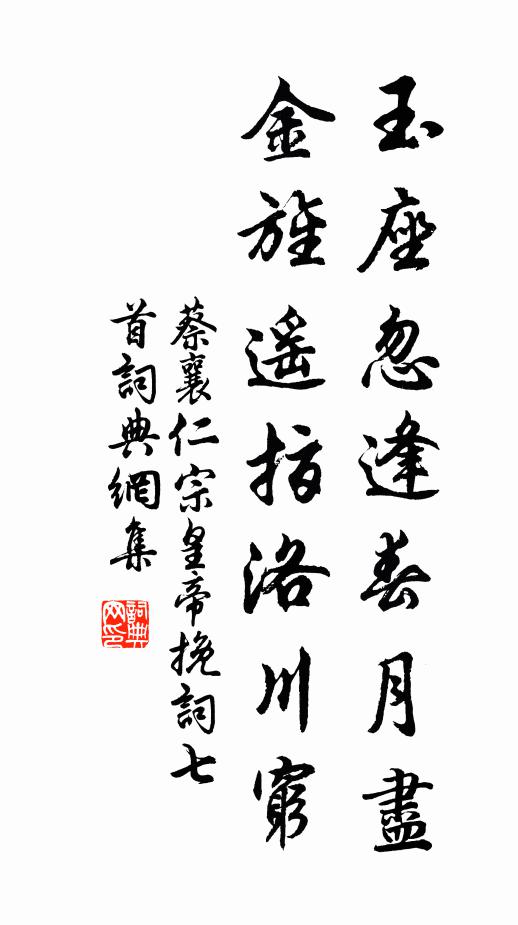 玉座忽逢春月盡
金旌遥指洛川窮
蔡襄仁宗皇帝挽詞七
首詞典網集
詞典
网印